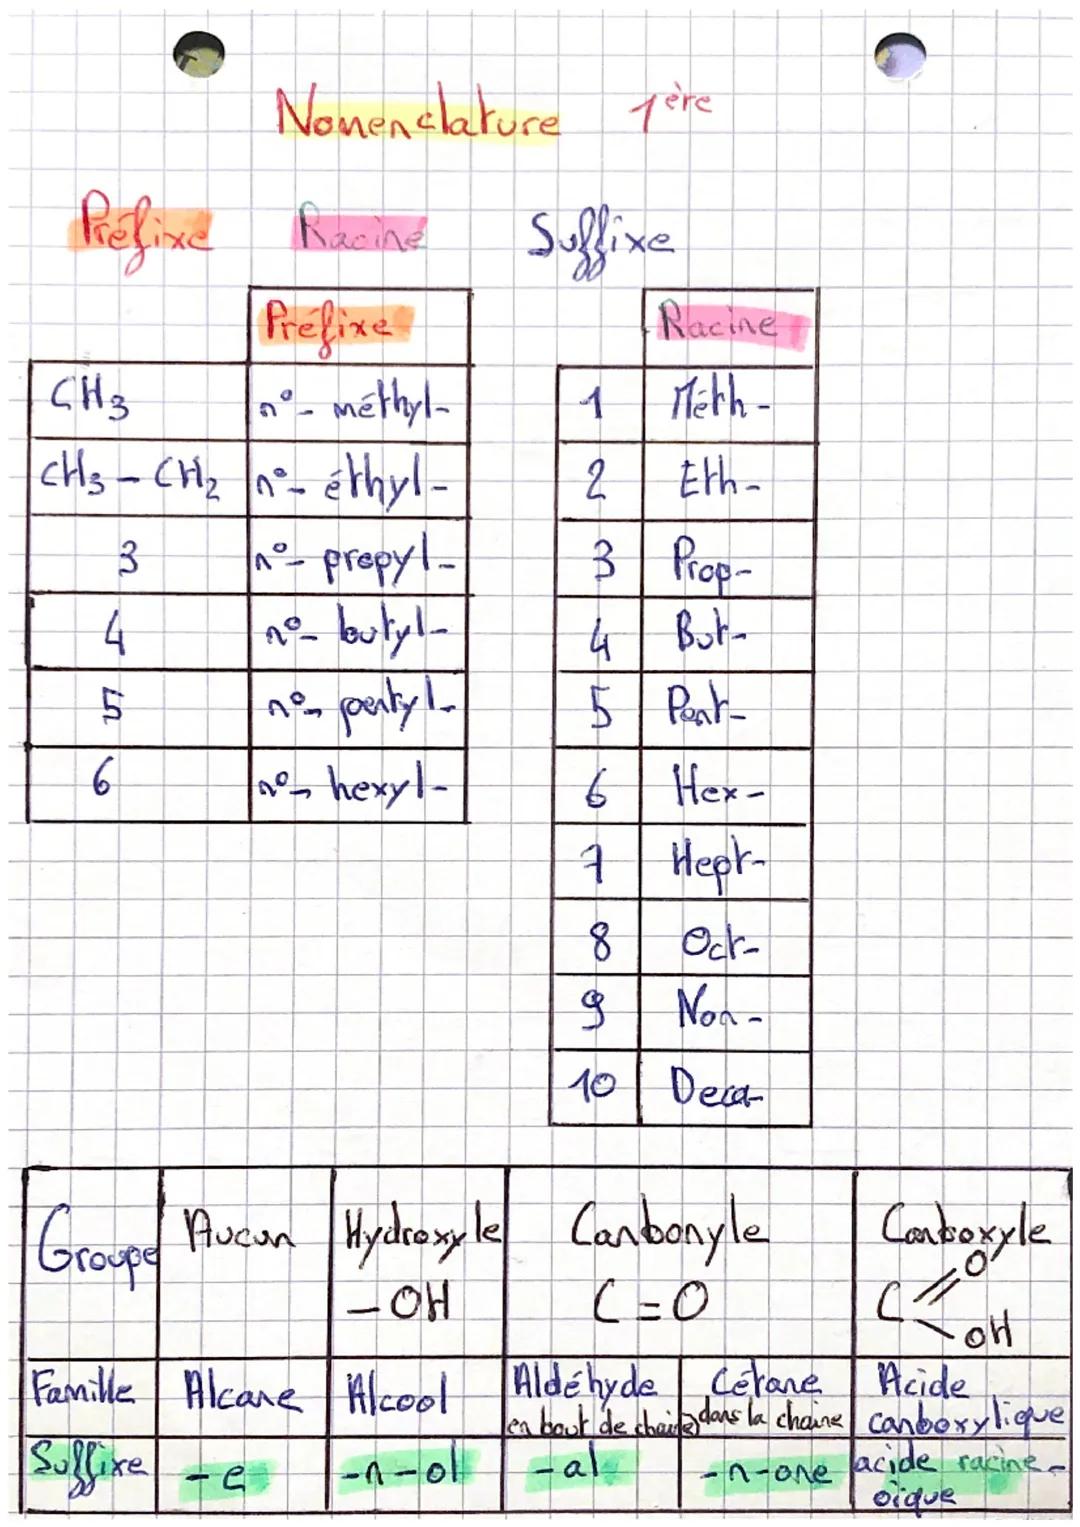 Nomenclature 1ère
Préfixe Racine Suffixe
Préfixe
CH3 n°- méthyl-
CH3 - CH2 n°- éthyl-
3 n°- propyl-
4 n°- butyl-
5 n°- pentyl-
6 n°- hexyl-
Racine
1 Méth-
2 Eth-
3 Prop-
4 But-
5 Pent-
6 Hex-
7 Hept-
8 Oct-
9 Non-
10 Deca-
Groupe Aucun Hydroxyle Carbonyle Carboxyle
-OH C=O C O OH
Famille Alcane Alcool Aldéhyde Cétane Acide
en bout de chaine dans la chaine carboxylique
Suffixe -e -n-ol -al -n-one acide racine-
oïque